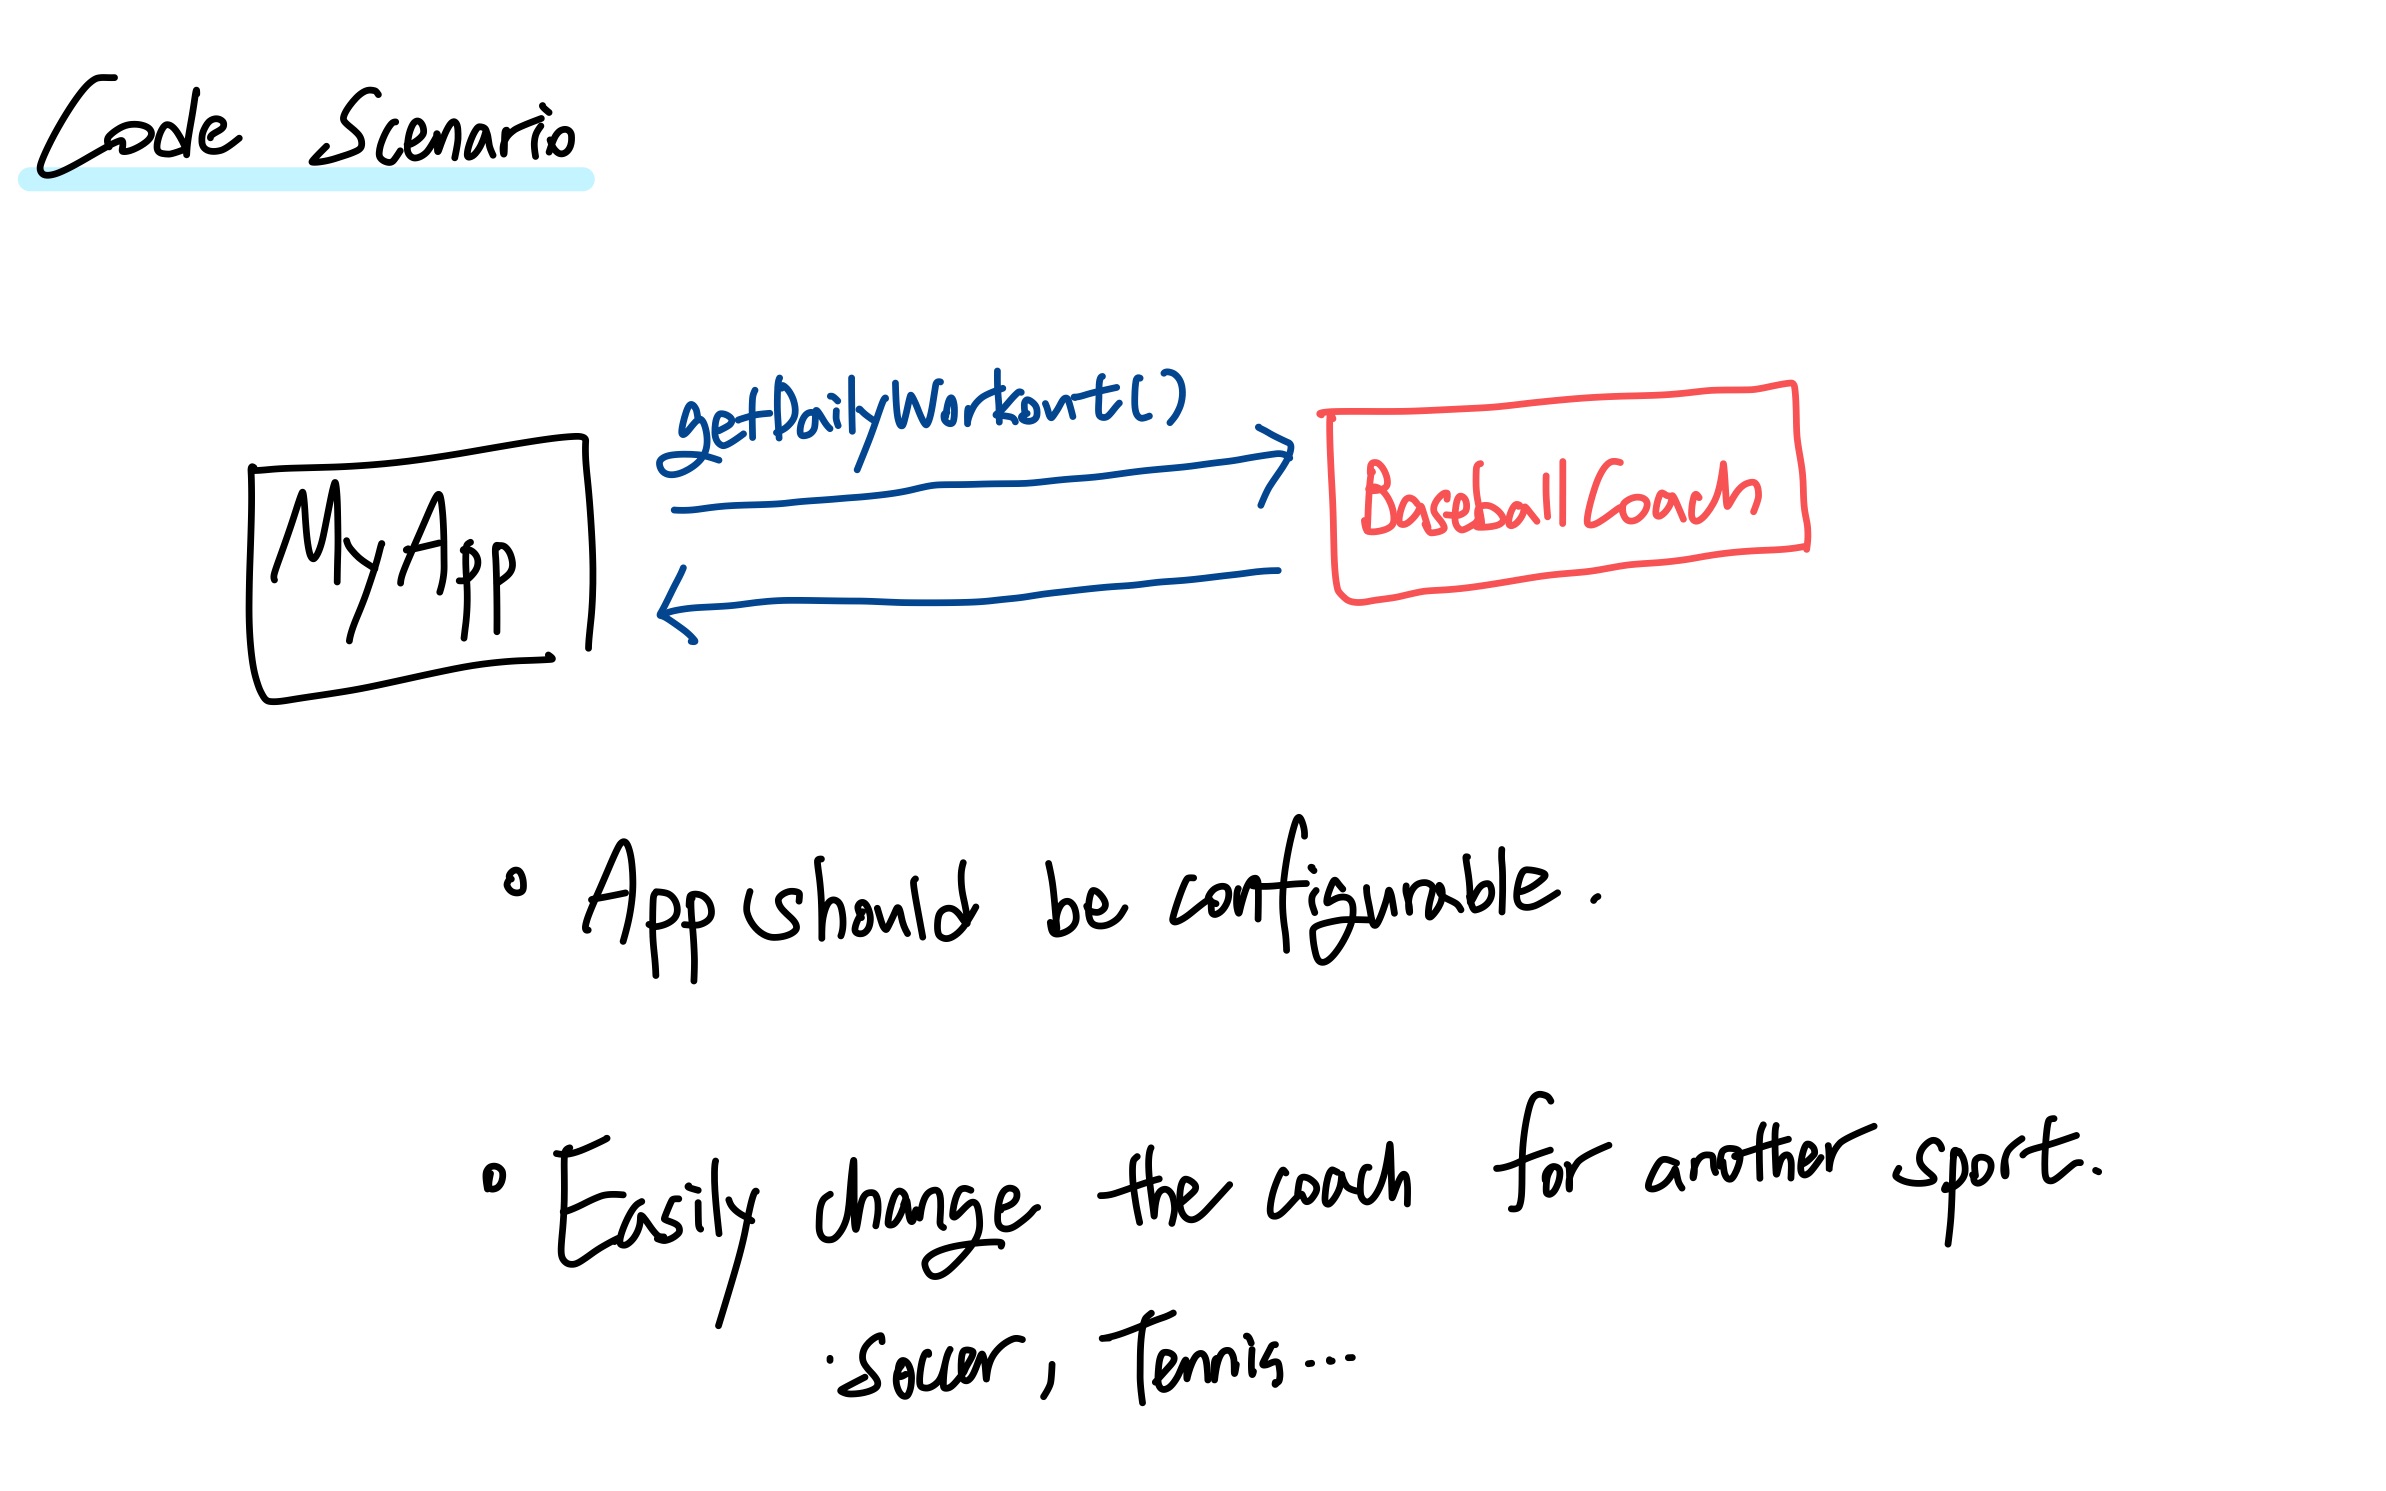 Code Scenario
getDailyWorkout()
MyApp
BaseballCoach
• App should be configurable.
• Easily change the coach for another sport.
· Soccer, Tennis...